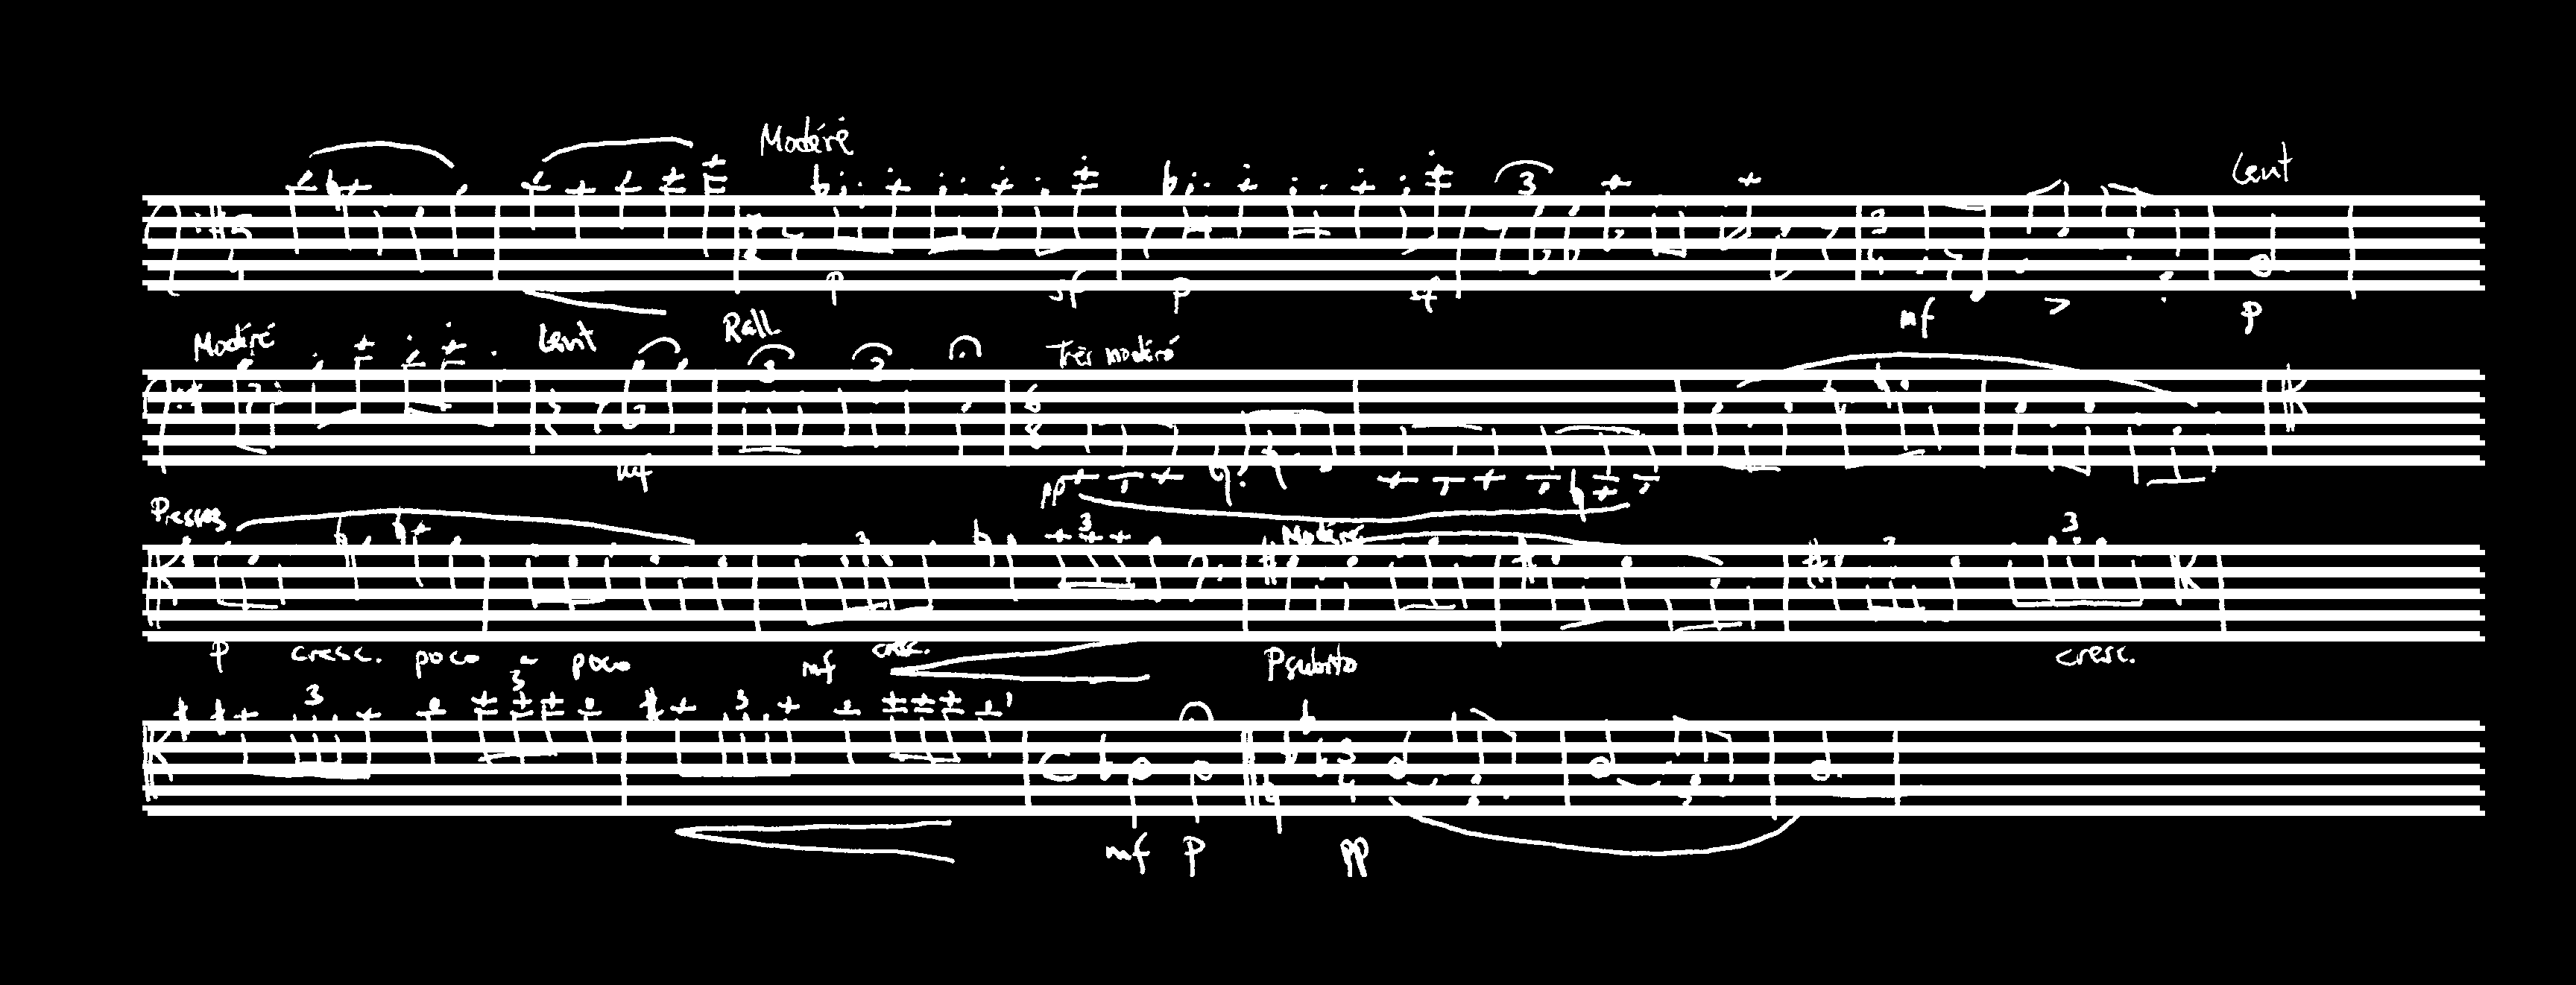 Modéré Lent
3
p sf p sf mf > p
Modéré Lent Rall Très modéré
3 3
mf pp
Pressez
3 3
p cresc. poco a poco mf cresc. Modéré P subito 3 3 cresc.
3 3 3
mf p pp